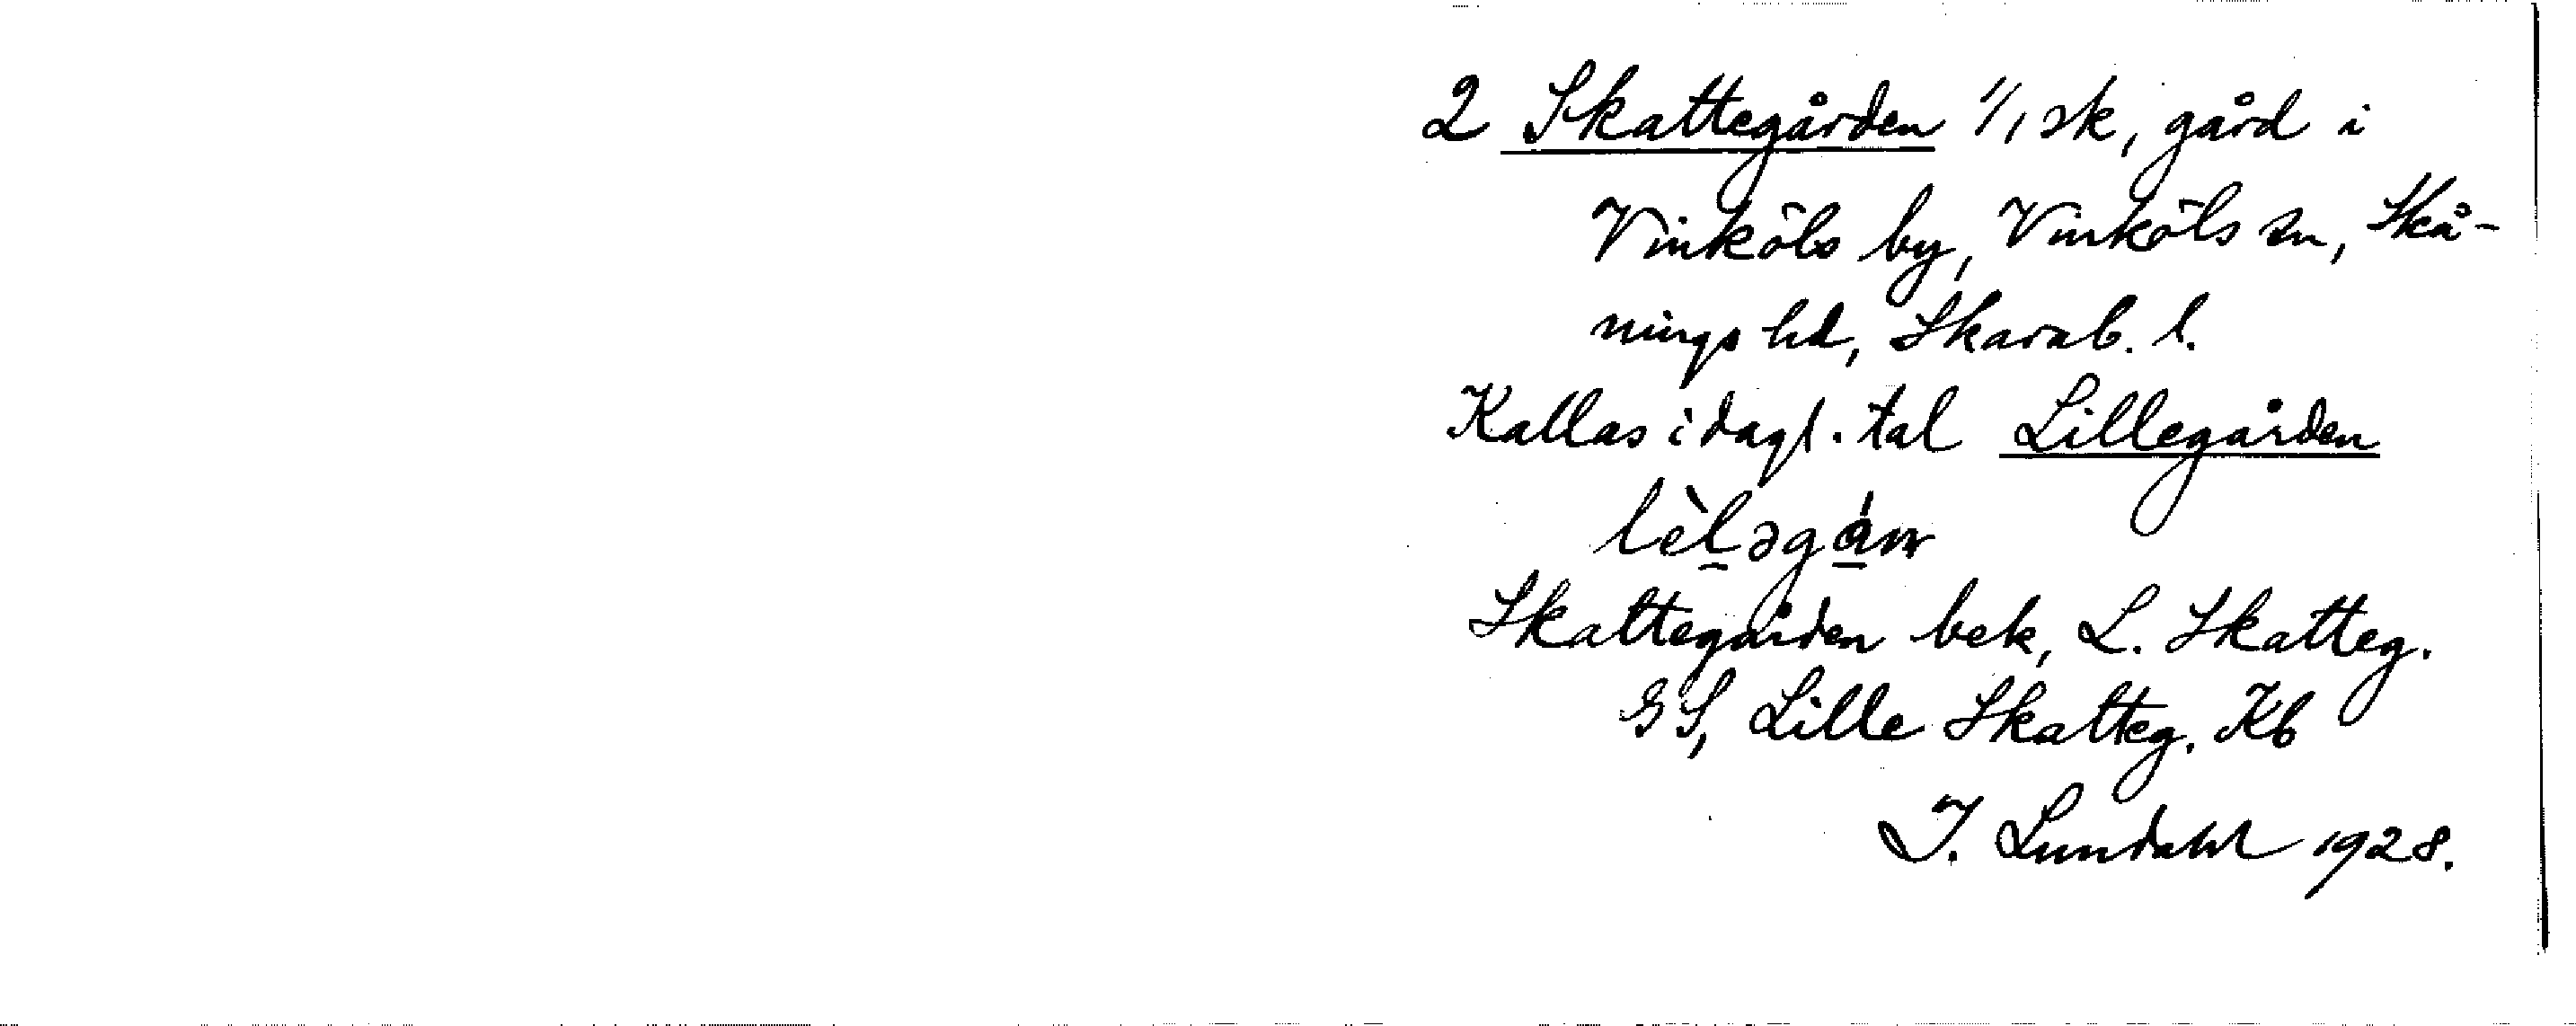 2 Skattegården 1/1 sk, gård i
Vinköls by, Vinköls sn, Skå-
nings hd, Skarab. l.
Kallas i dagl. tal Lillegården
lèləgán
Skattegården bek, L. Skatteg.
GS, Lille Skatteg. Kb
I. Lundahl 1928.